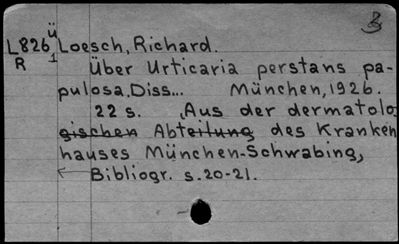 ü
L826 Loesch, Richard.
R 1
Über Urticaria perstans pa-
pulosa. Diss... München, 1926.
22 s. Aus der dermatolo-
gischen Abteilung des Kranken
hauses München-Schwabing,
Bibliogr. s.20-21.